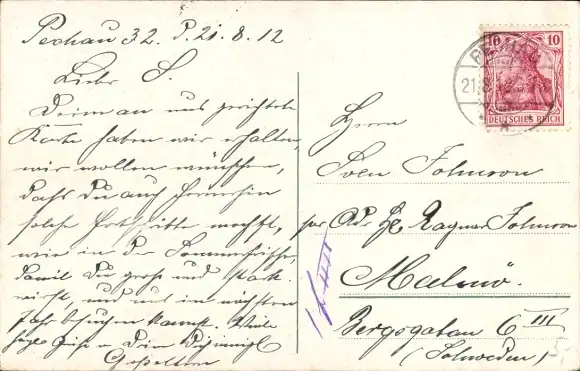 Pechau 32. P. 21.8.12
Lieber S.
Deine an uns gerichtete
Karte haben wir erhalten,
wir wollen wünschen,
daß Du auch fernerhin
solche Fortschritte machst,
wie in der Sommerfrische,
damit Du groß und stark
wirst, und uns im nächsten
Jahr besuchen kannst. Viele
Grüße Dein Dich innigl.
10 10
DEUTSCHES REICH
21.8.12
Herrn
Sven Johnson
per Adr Hr Ragnar Johnson
Malmö.
Bergsgatan 6 III
(Schweden)